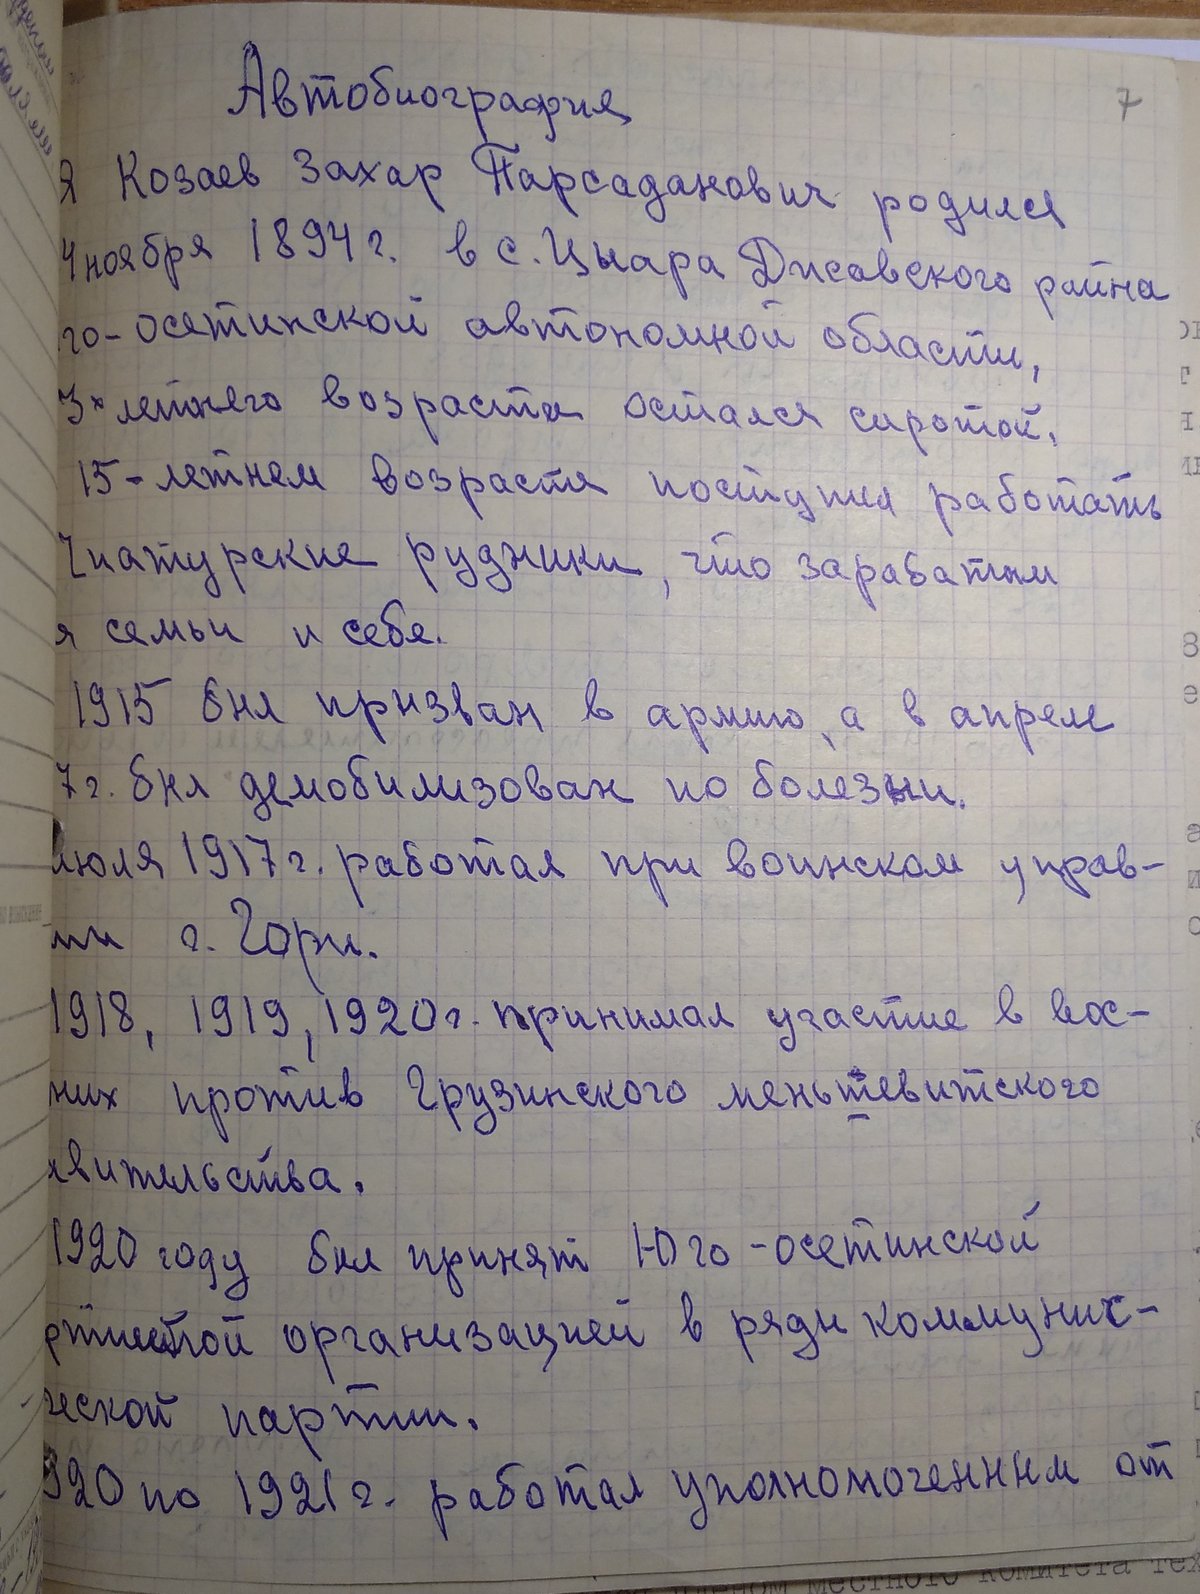 Автобиография
7
я Козаев Захар Парсаданович родился
4 ноября 1894 г. в с. Цнара Дисавского райна
го-осетинской автономной области,
3х летнего возраста остался сиротой.
15-летнем возрасте поступил работать
Чиатурские рудники, что заработам
я семьи и себе.
1915 был призван в армию, а в апреле
7 г. был демобилизован по болезни.
июля 1917 г. работал при воинском управ-
ии г. Гори.
1918, 1919, 1920 г. принимал участие в вос-
них против Грузинского меньшевитского
авительства.
1920 году был принят Юго-осетинской
ртийной организацией в ряды коммунис-
ческой партии.
920 по 1921 г. работал уполномоченным от
членом местного комитета тех